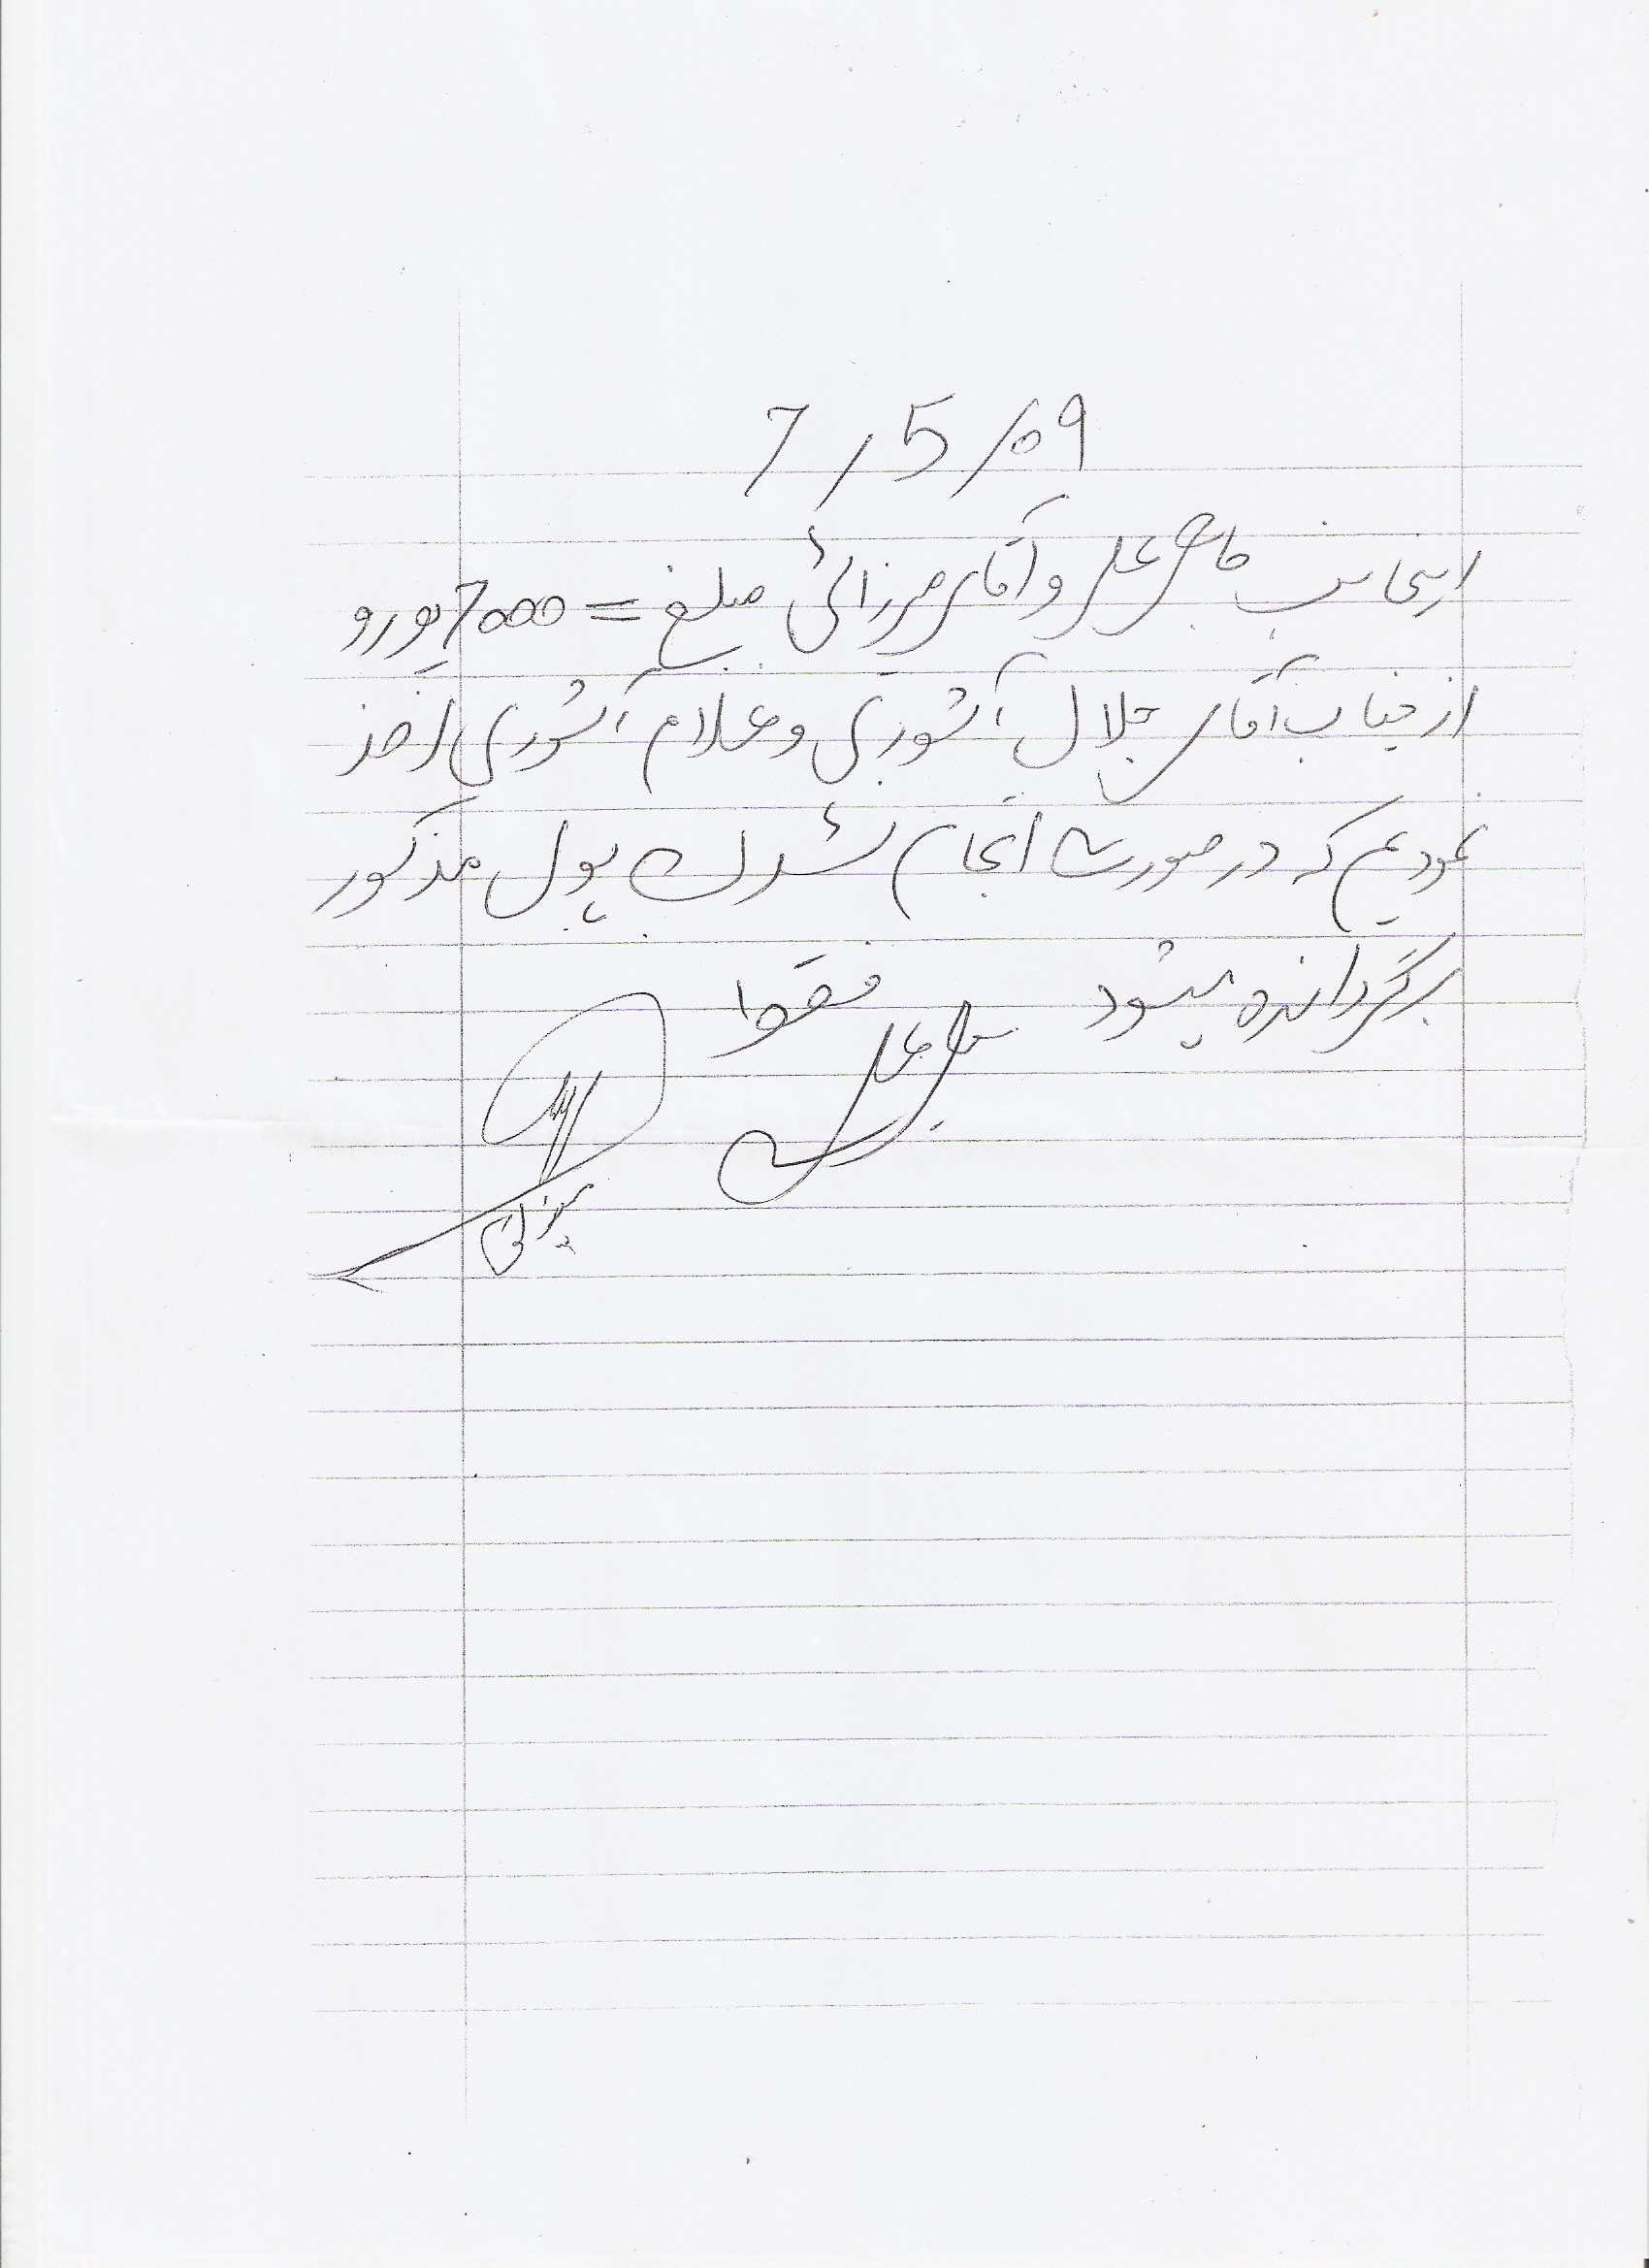 7/5/09
اینجانب حاجی علی و آقای میرزائی مبلغ = 7000 یورو
از جناب آقای جلال آشوری و غلام آشوری اخذ
نمودیم که در صورت انجام نشدن پول مذکور
برگردانده میشود فقط
حاجی علی
میرزائی